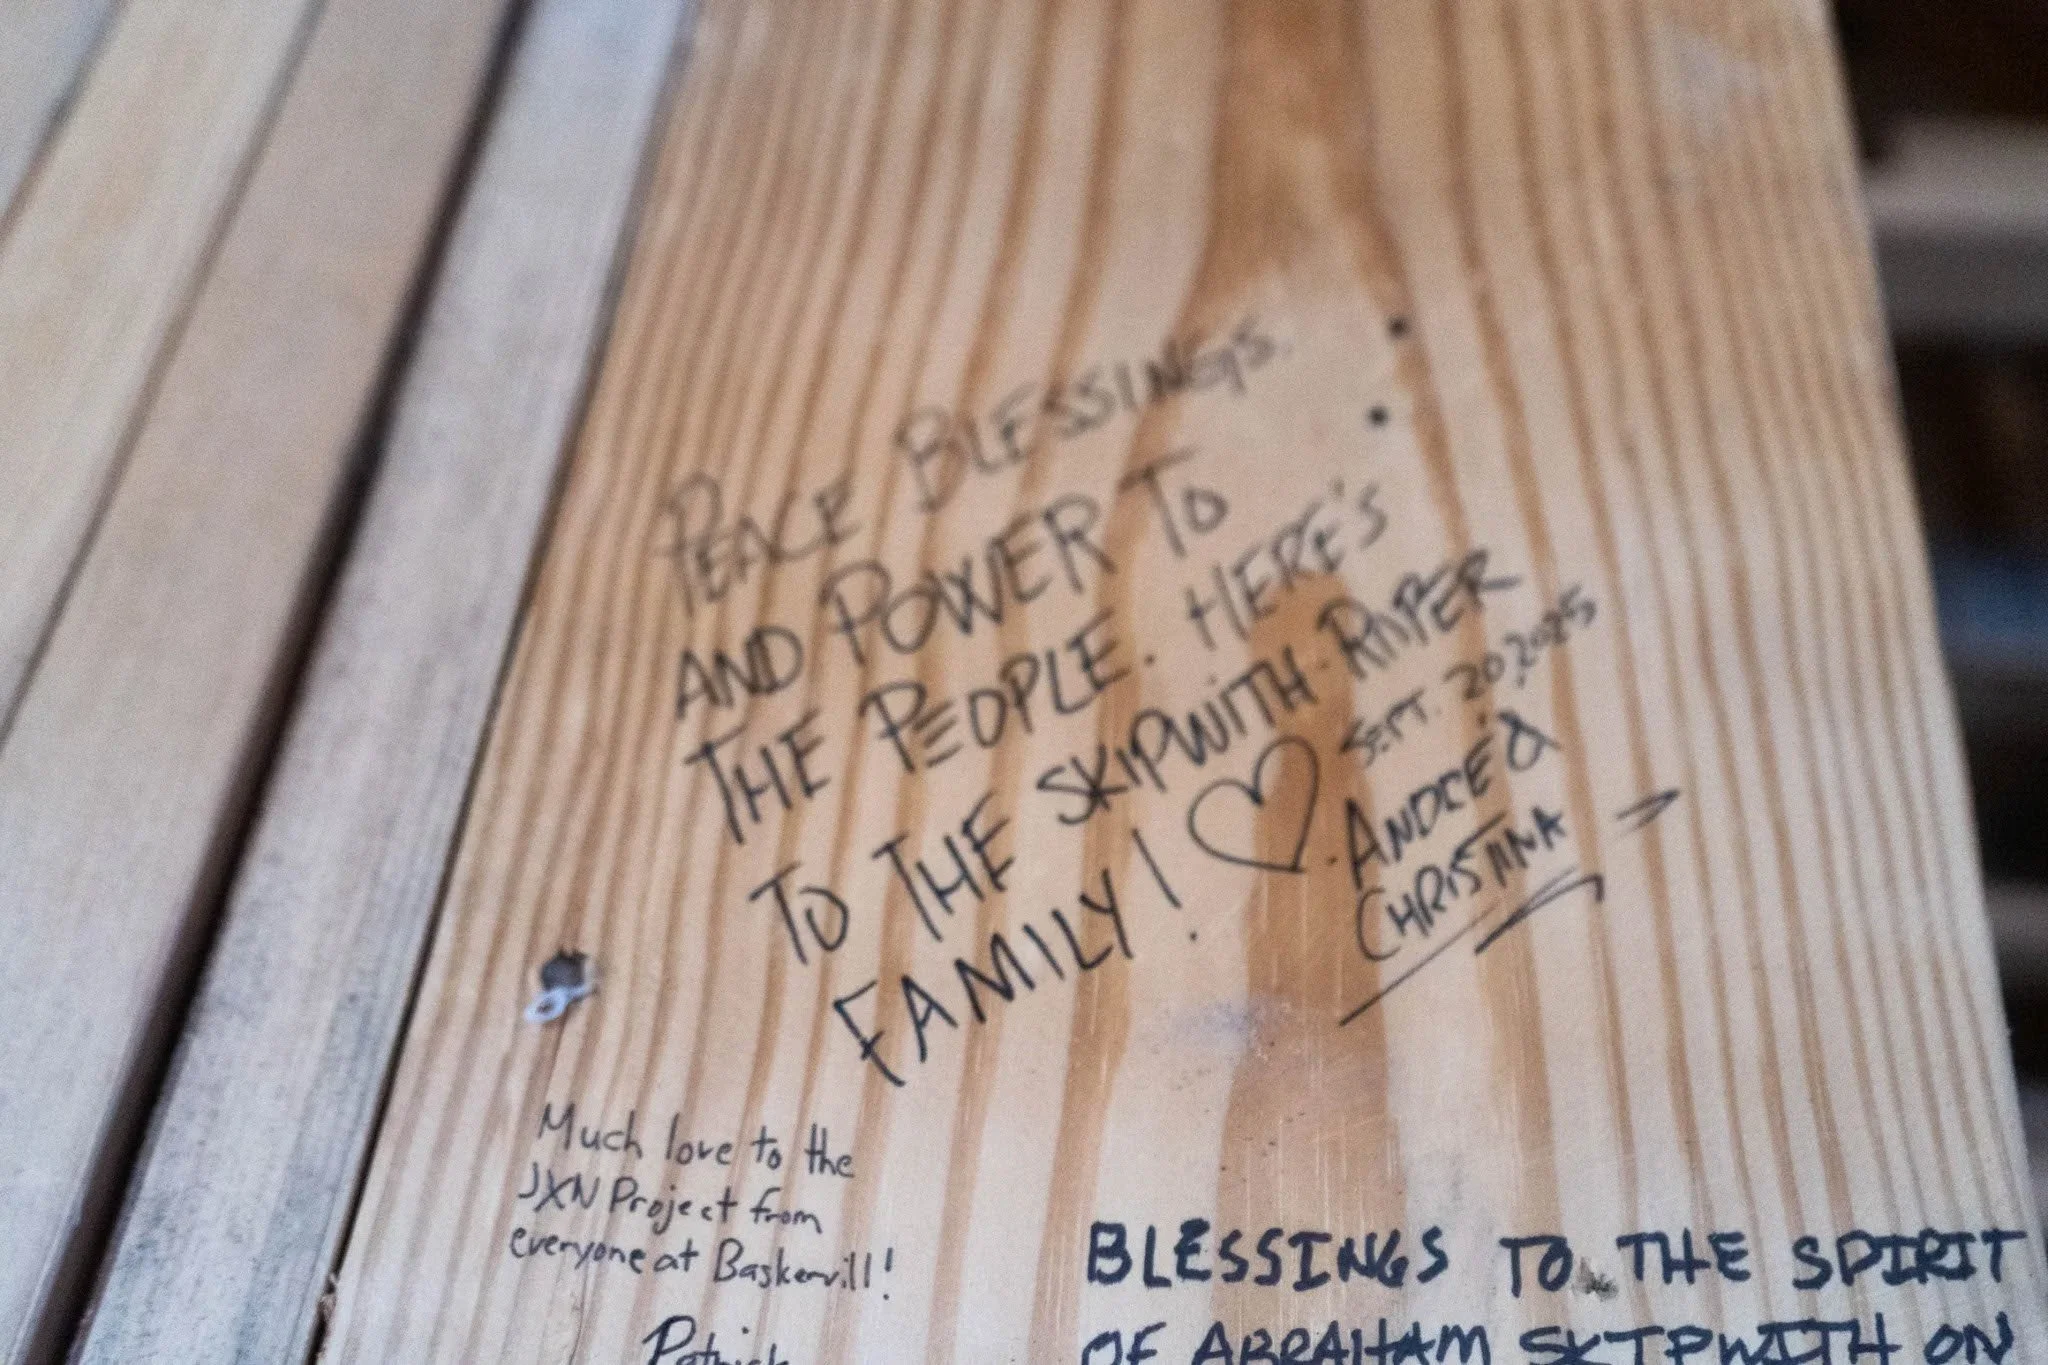 PEACE BLESSINGS.
AND POWER TO
THE PEOPLE. HERE'S
TO THE SKIPWITH-ROPER
FAMILY!
SEPT. 20, 2025
ANDRE &
CHRISTINA
Much love to the
JXN Project from
everyone at Baskervill!
Patrick
BLESSINGS TO THE SPIRIT
OF ABRAHAM SKIPWITH ON